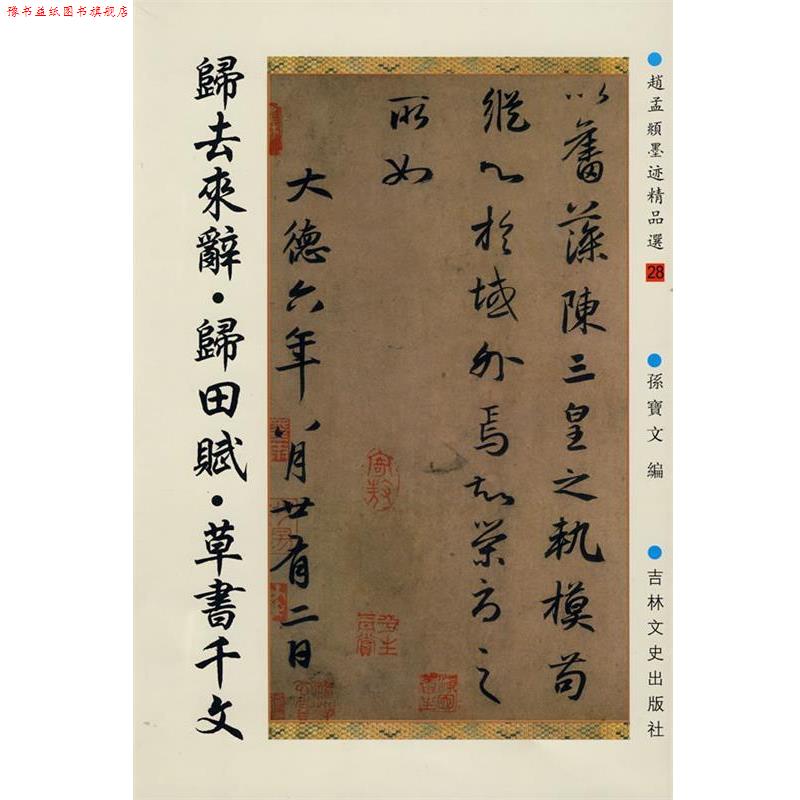 豫书益纸图书旗舰店
趙孟頫墨迹精品選 28
孫寶文 編
吉林文史出版社
以奮藻陳三皇之執模苟
縱心於域外焉知榮辱之
所如
大德六年八月廿有二日
歸去來辭·歸田賦·草書千文